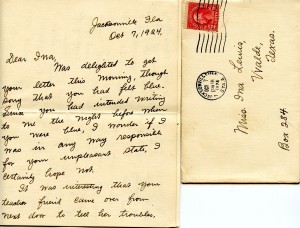 Jacksonville Fla
Oct 7, 1924.
Dear Ina,
Was delighted to get
your letter this morning, though
sorry that you had felt blue.
Since you had intended writing
to me the night before when
you were blue, I wonder if I
was in any way responsible
for your unpleasant state, I
certainly hope not.
It was interesting that your
teacher friend came over from
next door to tell her troubles.
Miss. Ina
Waelder,
Texas.
Box 284